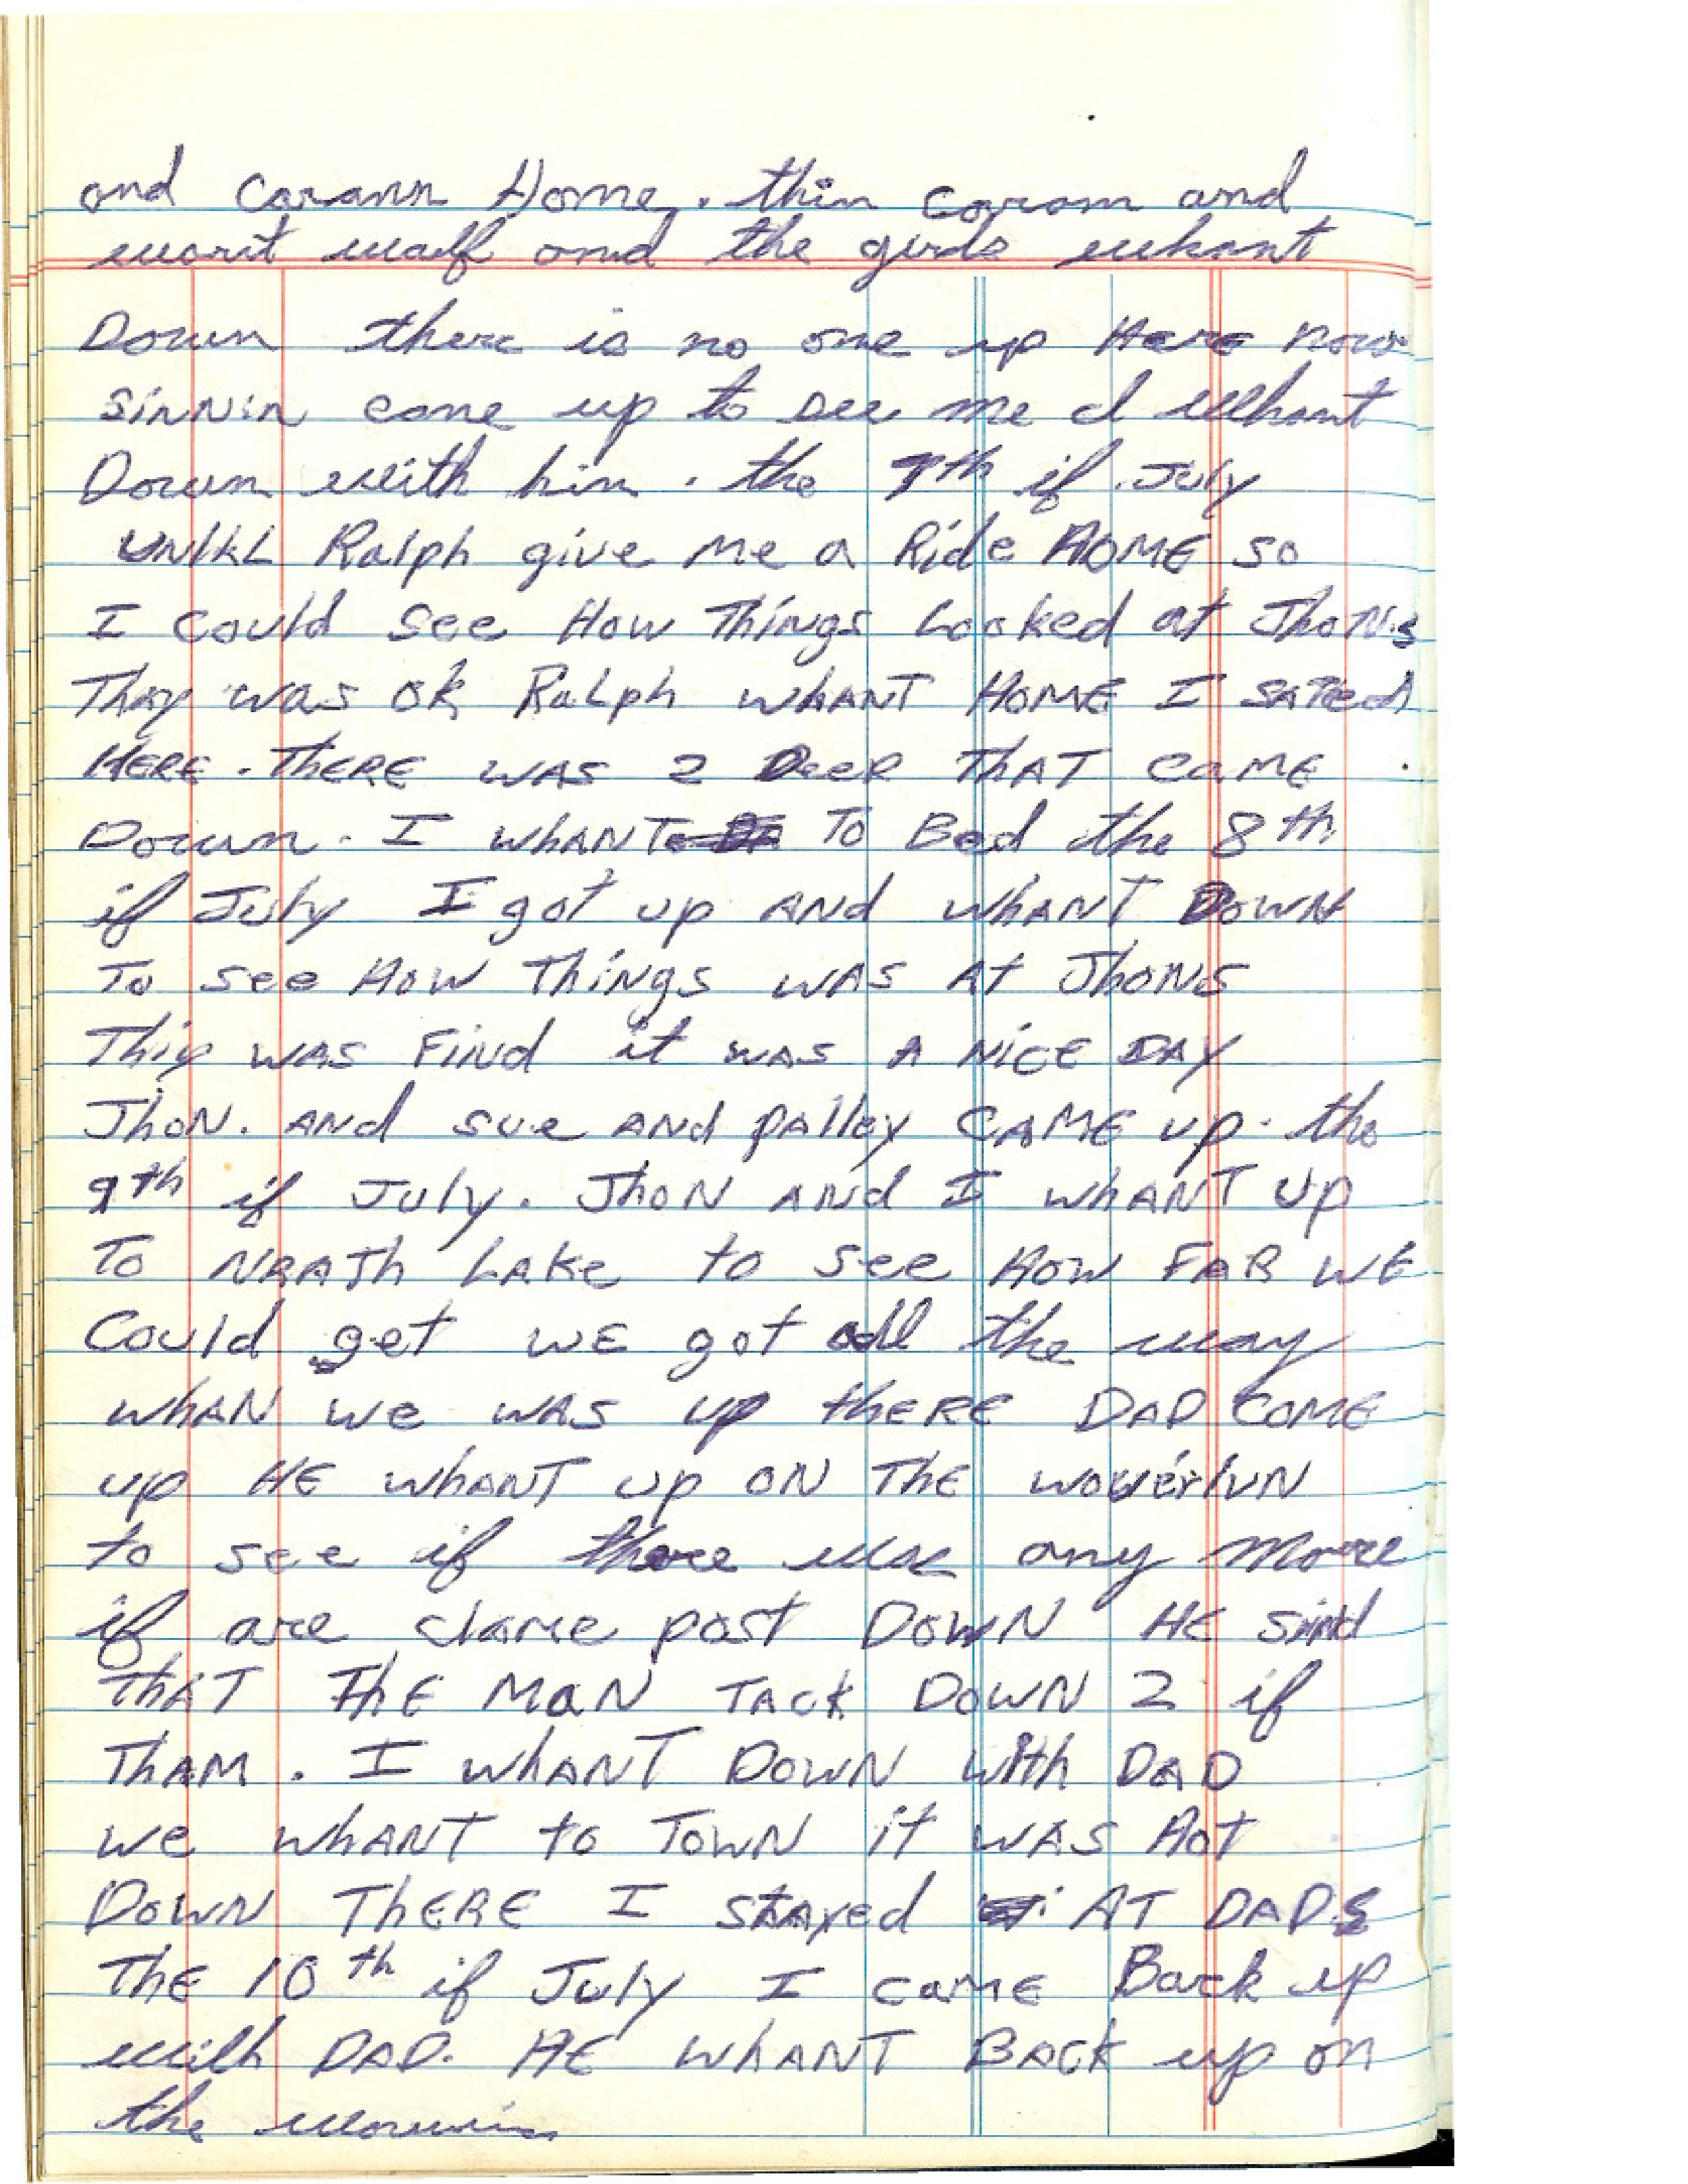 and Carann Home. thin Caram and
warit waif and the girds whant
Down there is no one up Here now
sinnin come up to see me I Whant
Down with him. the 7th if July
UNIKL Ralph give me a Ride HOME so
I could see How Things Looked at JhoNs
Thay was ok RaLph whANT HOME I SATed
HERE. THERE WAS 2 Deer THAT CAME
Down. I whANT To Bed the 8th
if July I got up AND whANT DOWN
To see How Things WAS At JhoNS
Thiy WAS FiNd it was A NiCE DAY
JhoN. ANd sue ANd pAlley CAME up. the
9th if July. JhoN ANd I whANT Up
To NRATh LAke to see How FAR WE
Could get WE got all the way
whAN we WAS up thERE DAD COME
up HE WhANT up ON THE woverluN
to see if there was any more
if are clame post DowN HE sind
thAT THE MaN TACk DowN 2 if
ThAM. I whANT DowN With DAD
we whANT to TowN it WAS Hot
DOWN THERE I stAyed AT DAD.s
THE 10th if July I came Back up
with DAD. HE whANT BACK up on
the